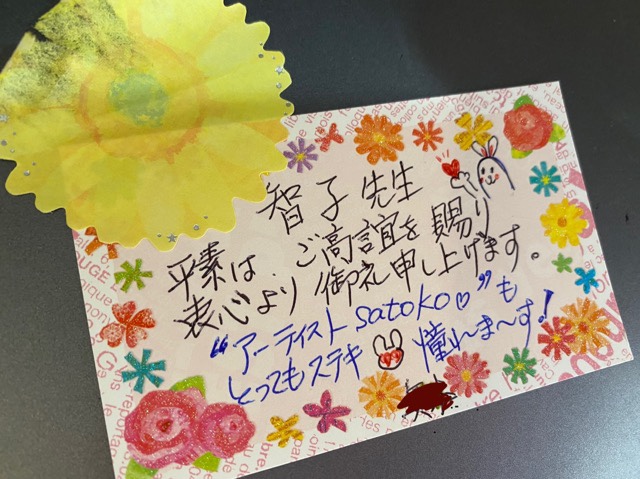 智子先生
平素は、ご高誼を賜り
衷心より御礼申し上げます。
"アーティスト satoko♡"も
とってもステキ 憧れま〜す!